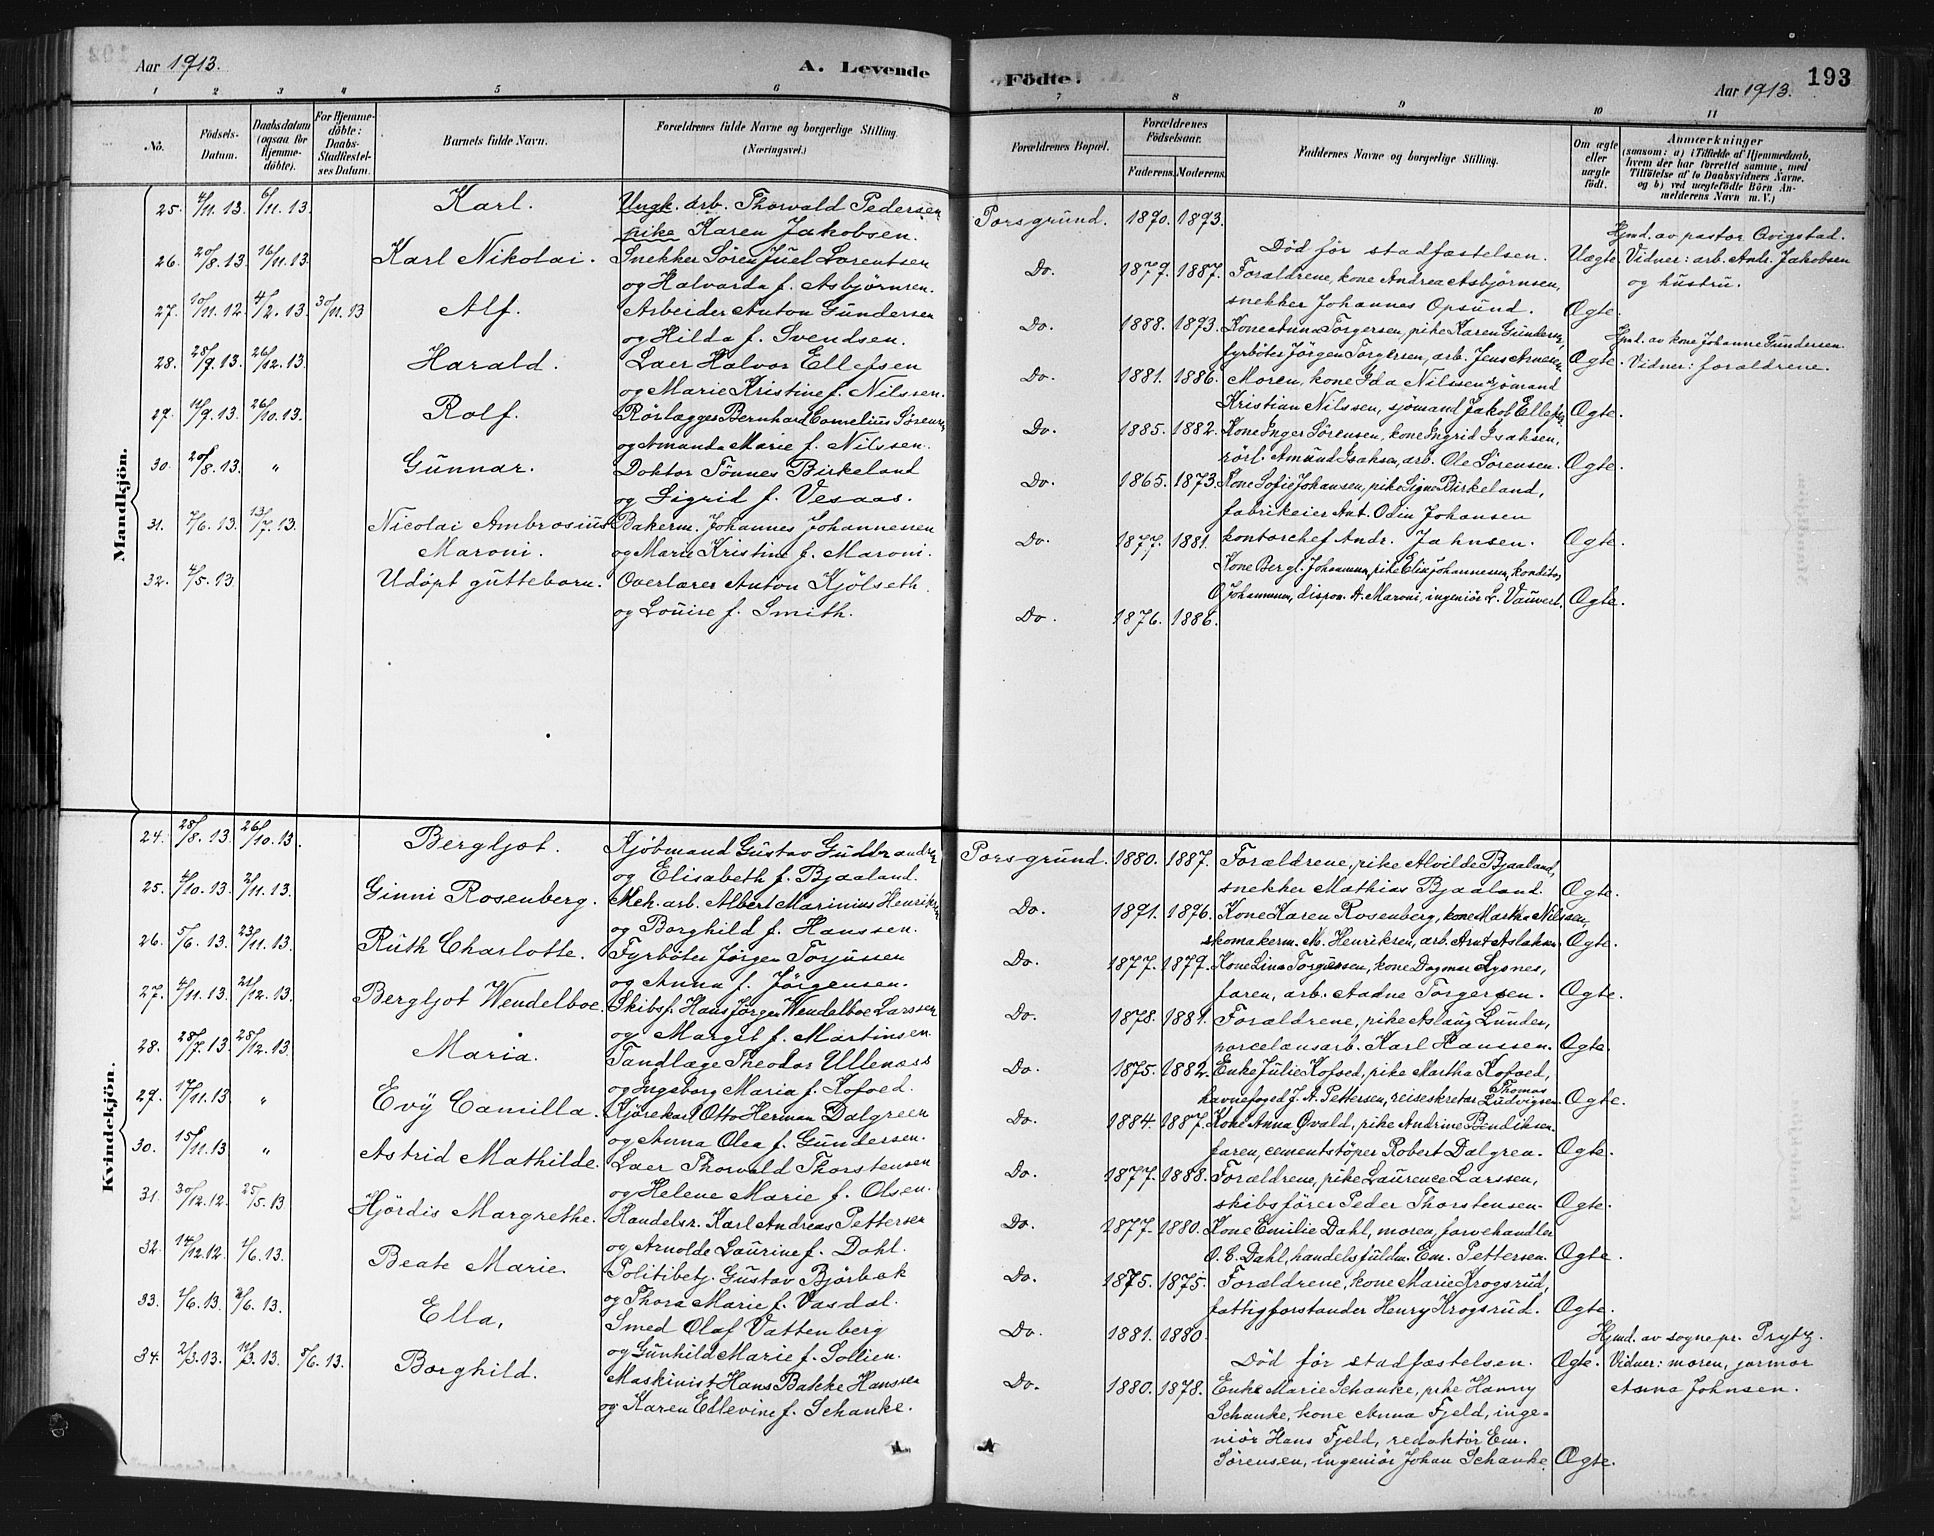 Aar 1913.
A. Levende
1 2 3 4 5 6
No.
Födsels-Datum.
Daabsdatum (ogsaa for Hjemmedöbte).
For Hjemmedöbte: Daabs-Stadfestelses Datum.
Barnets fulde Navn.
Forældrenes fulde Navne og borgerlige Stilling. (Næringsvei.)
Mandkjön.
25. 4/11.13. 6/11.13. Karl. Ungk. arb. Thorvald Pedersen
pike Karen Jakobsen.
26. 20/8.13. 16/11.13. Karl Nikolai. Snekker Sören Juel Lorentsen
og Halvarda f. Asbjörnsen.
27. 10/11.12 4/2.13. 30/11.13 Alf. Arbeider Anton Gundersen
og Hilda f. Svendsen.
28. 28/9.13. 26/12.13. Harald. Laer Halvor Ellefsen
og Marie Kristine f. Nilssen.
29. 11/9.13. 26/10.13. Rolf. Rörlægges Bernhard Cornelius Sörensen
og Amanda Marie f. Nilssen.
30. 20/8.13. " Gunnar. Doktor Tönnes Birkeland
og Sigrid f. Vesaas.
31. 7/6.13. 13/7.13. Nicolai Ambrosius Bakerm. Johannes Johannesen
Maroni. og Marie Kristine f. Maroni.
32. 4/5.13. Udöpt gutteborn. Overlærer Anton Kjölseth
og Louise f. Smith.
Kvindekjön.
24. 28/8.13. 26/10.13. Bergljot. Kjöbmand Gustav Gudbrandsen
og Elisabeth f. Bjaaland.
25. 4/10.13. 2/11.13. Ginni Rosenberg. Mek. arb. Albert Marinius Henriksen
og Borghild f. Hanssen.
26. 5/6.13. 23/11.13. Ruth Charlotte. Fyrböter Jörgen Torjussen
og Anna f. Jörgensen.
27. 4/11.13. 21/12.13. Bergljot Wendelboe. Skibsf. Hans Jörgen Wendelboe Larssen
og Margit f. Martinsen.
28. 28/7.13. 28/12.13. Maria. Tandlæge Theodor Ullenæss
og Ingeborg Maria f. Kofoed.
29. 17/11.13. " Evÿ Camilla. Kjörekarl Otto Herman Dalgreen
og Anna Olea f. Gundersen.
30. 15/11.13 " Astrid Mathilde. Laer Thorvald Thorstensen
og Helene Marie f. Olsen.
31. 30/12.12. 25/5.13 Hjördis Margrethe. Handelsr. Karl Andreas Pettersen
og Arnolde Laurine f. Dahl.
32. 14/12.12. 1/6.13. Beate Marie. Politibetj. Gustav Björbæk
og Thora Marie f. Vasdal.
33. 1/6.13. 3/6.13. Ella, Smed Olaf Vattenberg
og Gunhild Marie f. Sollien.
34. 2/3.13. 11/3.13. 8/6.13. Borghild. Maskinist Hans Bakke Hanssen
og Karen Edlevine f. Schanke.
Födte.
193
Aar 1913.
7 8 9 10 11
Forældrenes Bopæl.
Forældrenes Födselsaar.
Faderens. Moderens.
Faddernes Navne og borgerlige Stilling.
Om ægte eller uægte födt.
Anmærkninger
(saasom: a) i Tilfælde af Hjemmedaab, hvem der har forrettet samme, med Tilföielse af to Daabsvidners Navne, og b) ved uægtefödte Börn Anmelderens Navn m. V.)
Porsgrund. 1870. 1893.
Död för stadfæstelsen. Uægte.
Hjmd. av pastor Qvigstad.
Vidner: arb. Andr. Jakobsen
og hustru.
Do. 1877. 1887. Forældrene, kone Andrea Asbjörnsen,
snekker Johannes Opsund. Ægte.
Do. 1888. 1893. Kone Anna Torgersen, pike Karen Gundersen,
fyrböter Jörgen Torgersen, arb. Jens Arnesen. Ægte.
Hjmd. av kone Johanne Gundersen.
Vidner: forældrene.
Do. 1881. 1886. Moren, kone Ida Nilssen, sjömand
Kristian Nilssen, sjömand Jakob Ellefsen. Ægte.
Do. 1885. 1882. Kone Inger Sörensen, kone Ingrid Isaksen,
rörl. Amund Isaksen, arb. Ole Sörensen. Ægte.
Do. 1865. 1873. Kone Sofie Johansen, pike Signe Birkeland,
fabrikeier Ant. Odin Johansen
kontorchef Andr. Jahnsen. Ægte.
Do. 1877. 1881.
Kone Bergl. Johannesen, pike Elin Johannessen, konditor
O. Johannesen, dispon. A. Maroni, ingeniör L. Vauvert. Ægte.
Do. 1876. 1886.
Porsgrund. 1880. 1887. Forældrene, pike Alvilde Bjaaland,
snekker Mathias Bjaaland Ægte.
Do. 1891. 1896. Kone Karen Rosenberg, kone Martha Nilssen,
skomakerm. M. Henriksen, arb. Arnt Aslaksen. Ægte.
Do. 1877. 1879. Kone Lina Torgersen, kone Dagmar Lysnes,
faren, arb. Aadne Torgersen. Ægte.
Do. 1878. 1881. Forældrene, pike Aslaug Lunder,
porcelænsarb. Karl Hanssen. Ægte.
Do. 1875. 1882. Enke Julie Kofoed, pike Martha Kofoed,
havnefoged J. A. Pettersen, reiseskretær Thomas Ludvigsen. Ægte.
Do. 1884. 1887. Kone Anna Qvald, pike Andrine Bendiksen.
faren, cementstöper Robert Dalgren. Ægte.
Do. 1877. 1888. Forældrene, pike Laurence Larssen,
skibsförer Peder Thorstensen. Ægte.
Do. 1877. 1880. Kone Emilie Dahl, moren, farvehandler
O. C. Dahl, handelsfuldm. Em. Pettersen. Ægte.
Do. 1875. 1875. Forældrene, kone Marie Krogsrud,
fattigforstander Henry Krogsrud. Ægte.
Do. 1881. 1880.
Död för stadfæstelsen. Ægte.
Hjmd. av sognepr. Prytz.
Vidner: moren, jormor
Anna Johnsen.
Do. 1880. 1878. Enke Marie Schanke, pike Hanny
Schanke, kone Anna Fjeld, inge-
niör Hans Fjeld, redaktör Em.
Sörensen, ingeniör Johan Schanke. Ægte.